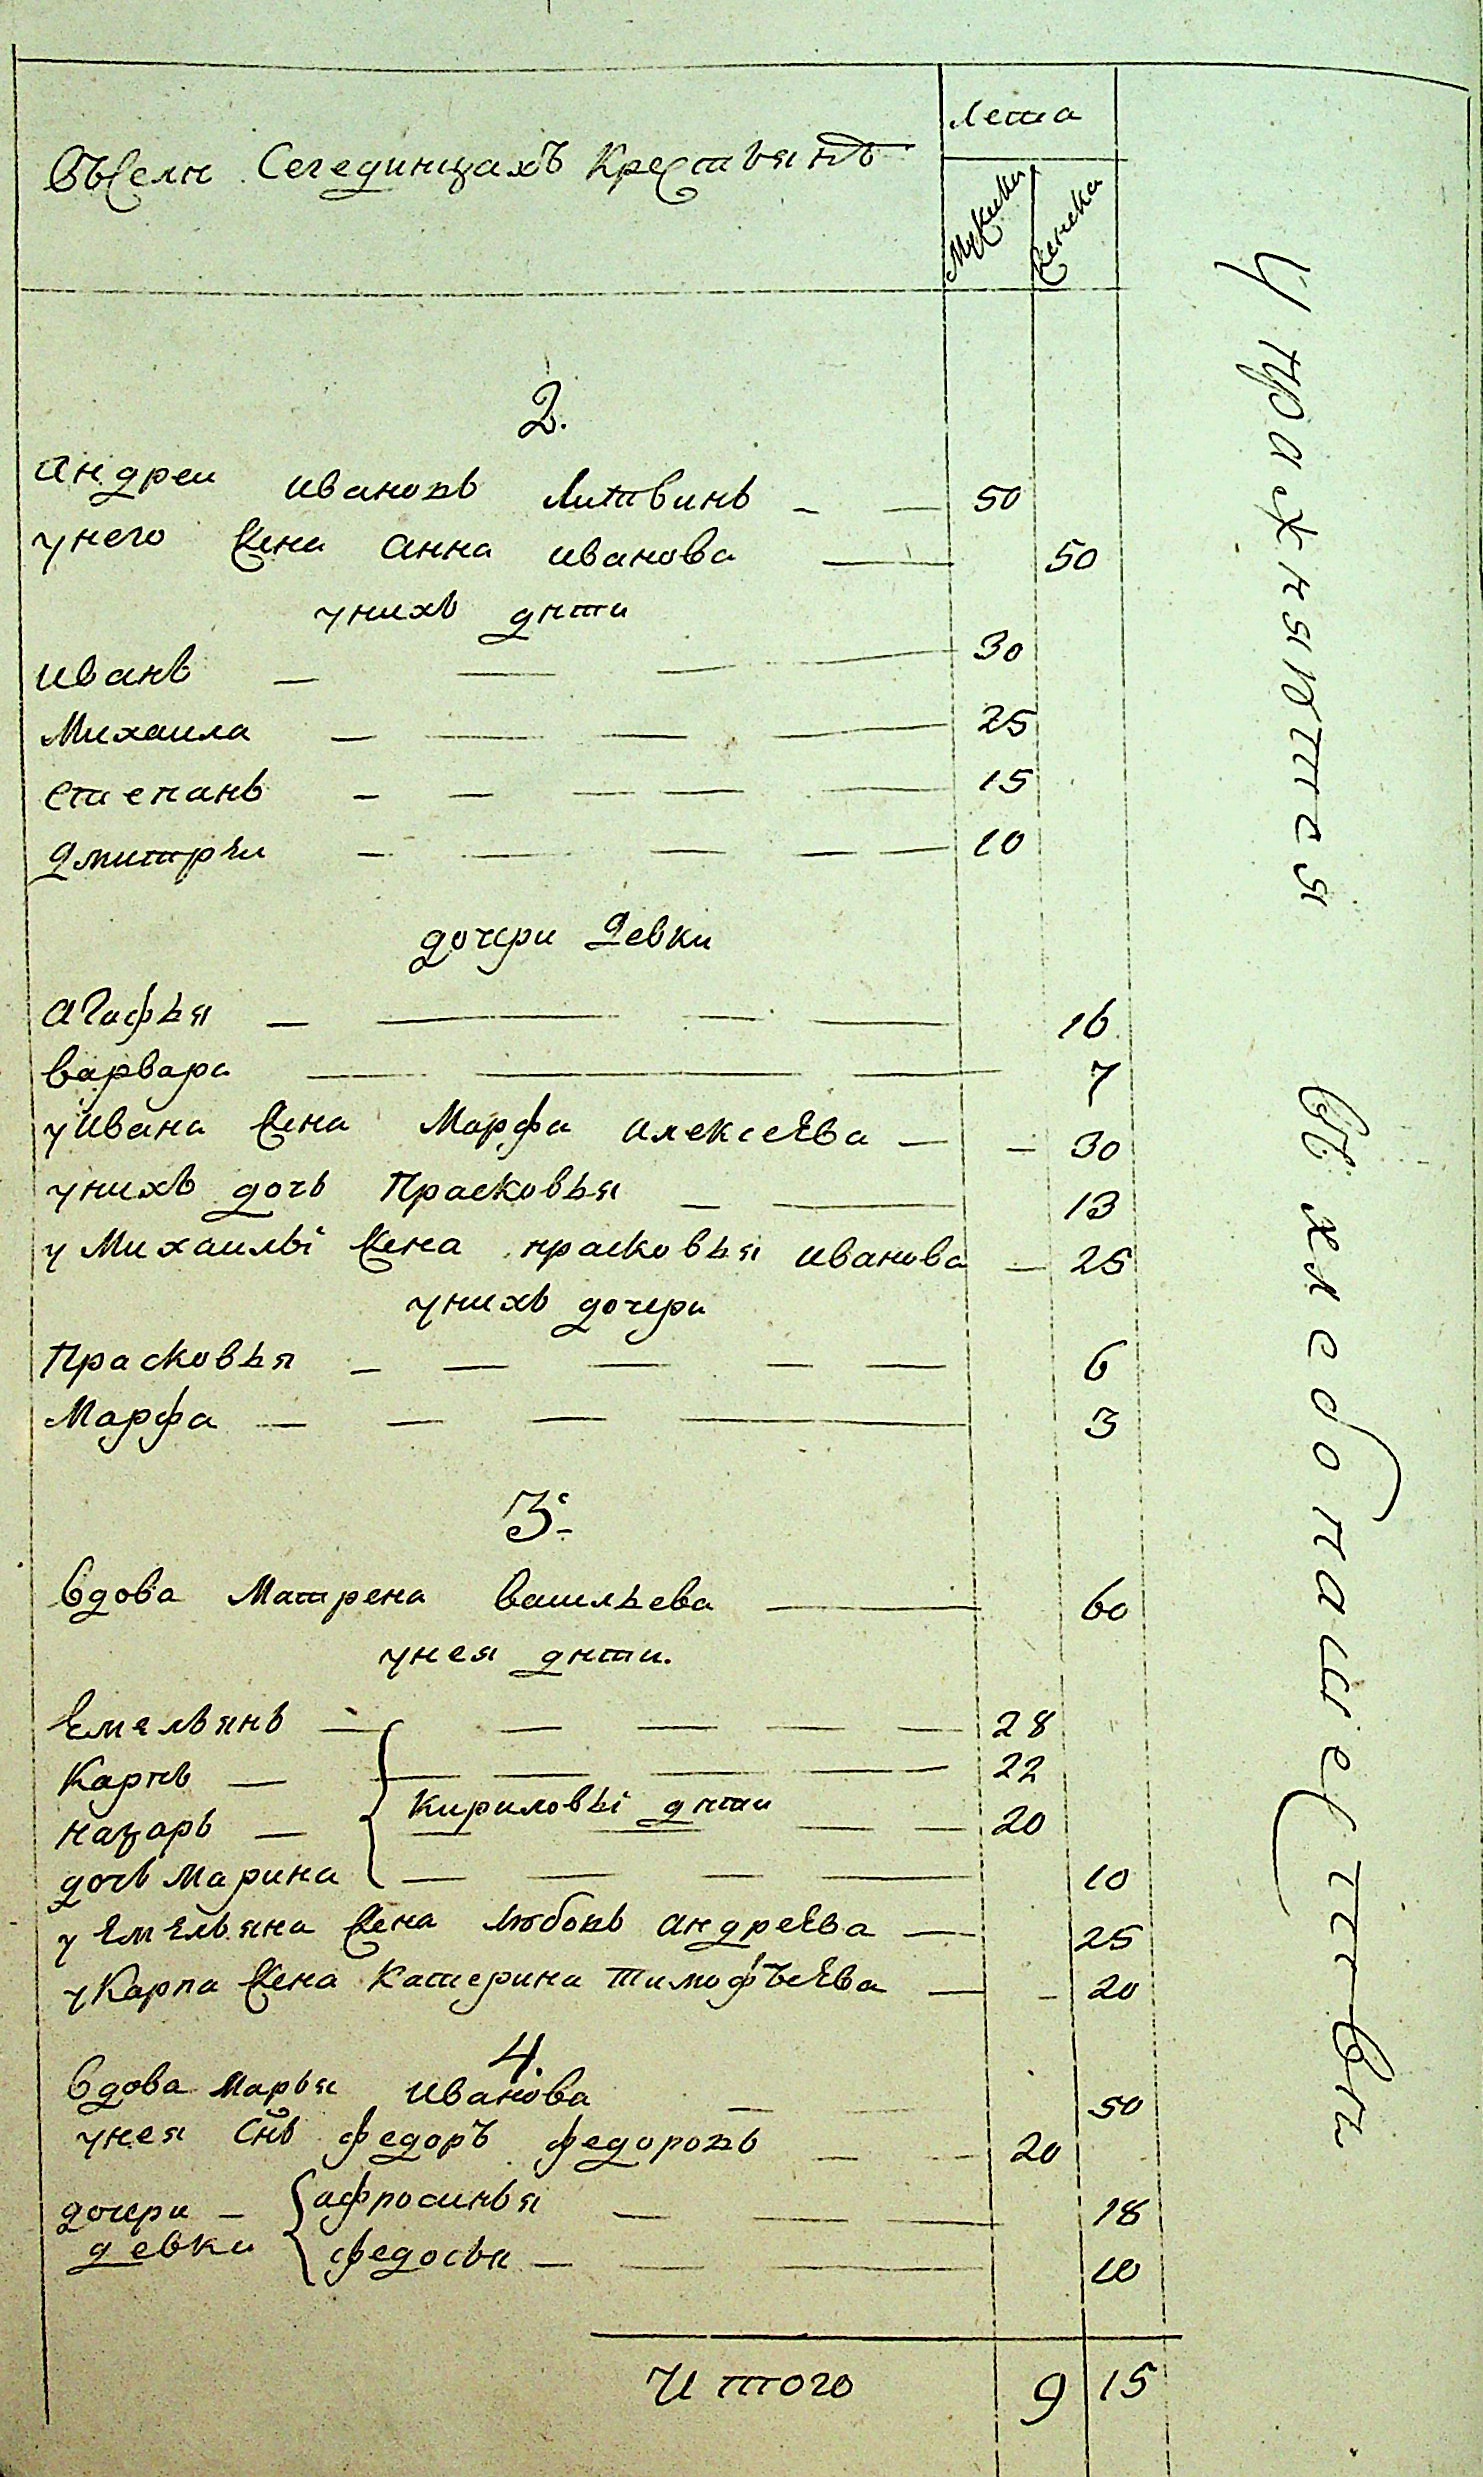 Въ селѣ Сегединцахъ Крестьянъ
Лета
Мужска
Женска
2.
Андреи Ивановъ Литвинъ 50
у него жена Анна Иванова 50
у нихъ дѣти
Иванъ 30
Михаила 25
Степанъ 15
Дмитреи 10
дочери девки
Агафья 16
Варвара 7
у Ивана жена Марфа Алексеева 30
у нихъ дочь Прасковья 13
у Михаилы жена Прасковья Иванова 25
у нихъ дочери
Прасковья 6
Марфа 3
3.
вдова Матрена Васильева 60
у нея дѣти.
Емельянъ 28
Карпъ 22
Кириловы дѣти
Назаръ 20
дочь Марина 10
у Емельяна жена Любовь Андреева 25
у Карпа жена Катерина Тимофѣева 20
4.
вдова Марья Иванова 50
у нея снъ Федоръ Федоровъ 20
дочери Афросинья 18
девки Федосья 10
Итого 9 15
Упражняются въ хлебопашествѣ